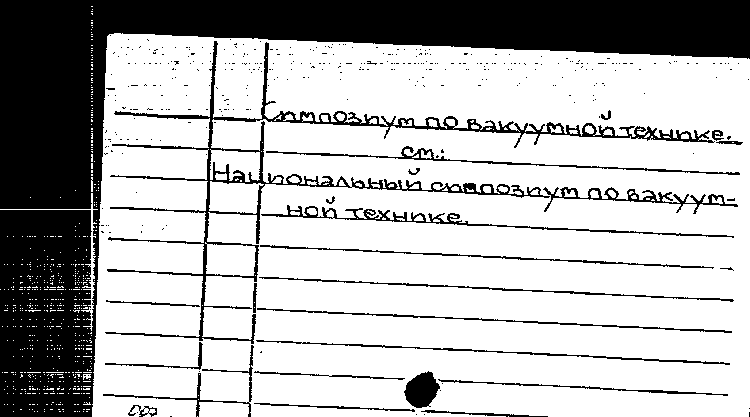 Симпозиум по вакуумной технике.
см.:
Национальный симпозиум по вакуум-
ной технике.